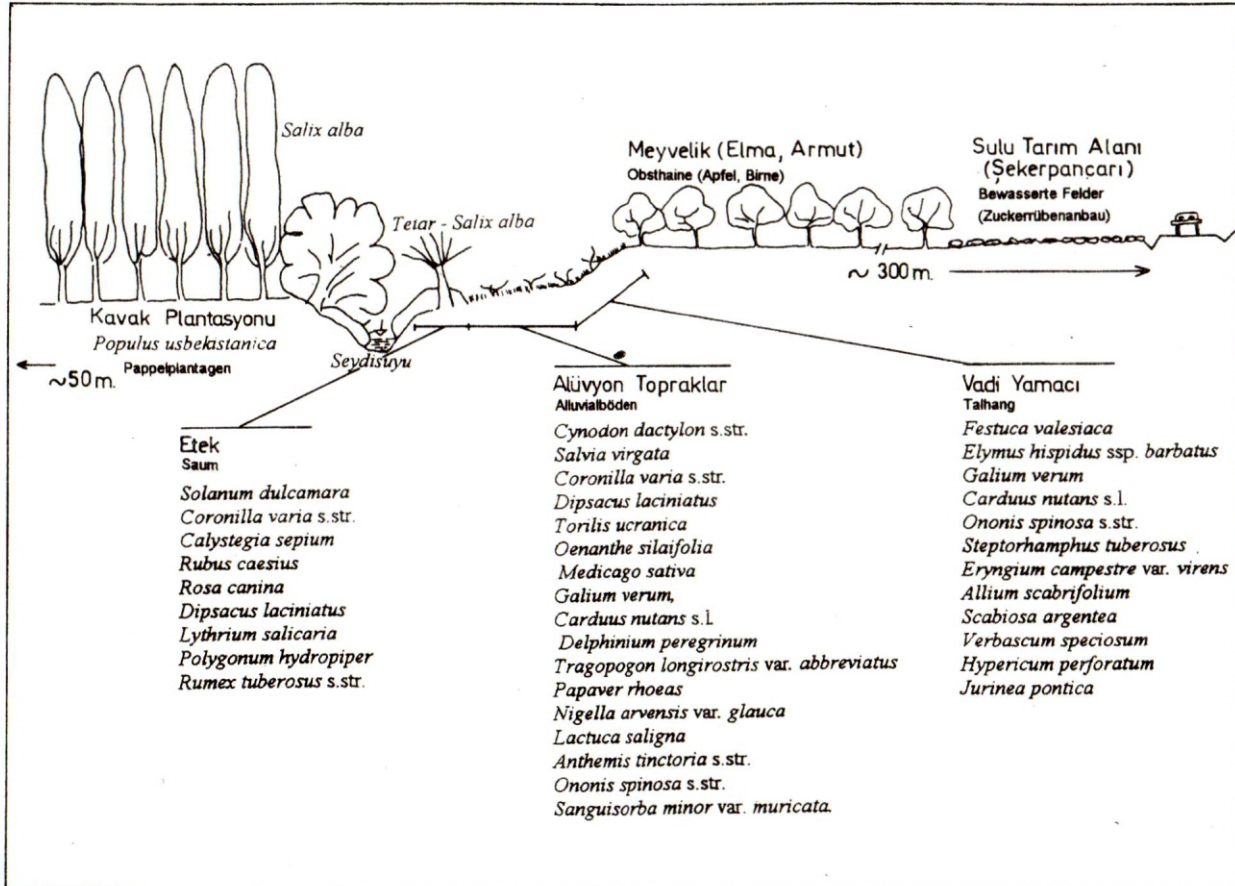 Salix alba
Tetar - Salix alba
Meyvelik (Elma, Armut)
Obsthaine (Apfel, Birne)
Sulu Tarım Alanı
(Şekerpançarı)
Bewasserte Felder
(Zuckerrübenanbau)
~ 300 m.
Kavak Plantasyonu
Populus usbekistanica
Pappelplantagen
~50 m.
Seydisuyu
Etek
Saum
Solanum dulcamara
Coronilla varia s.str.
Calystegia sepium
Rubus caesius
Rosa canina
Dipsacus laciniatus
Lythrium salicaria
Polygonum hydropiper
Rumex tuberosus s.str.
Alüvyon Topraklar
Alluvialböden
Cynodon dactylon s.str.
Salvia virgata
Coronilla varia s.str.
Dipsacus laciniatus
Torilis ucranica
Oenanthe silaifolia
Medicago sativa
Galium verum,
Carduus nutans s.l
Delphinium peregrinum
Tragopogon longirostris var. abbreviatus
Papaver rhoeas
Nigella arvensis var. glauca
Lactuca saligna
Anthemis tinctoria s.str.
Ononis spinosa s.str.
Sanguisorba minor var. muricata.
Vadi Yamacı
Talhang
Festuca valesiaca
Elymus hispidus ssp. barbatus
Galium verum
Carduus nutans s.l.
Ononis spinosa s.str.
Steptorhamphus tuberosus
Eryngium campestre var. virens
Allium scabrifolium
Scabiosa argentea
Verbascum speciosum
Hypericum perforatum
Jurinea pontica